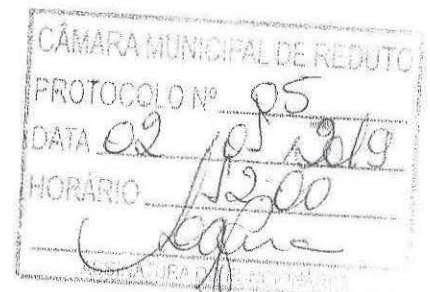 CÂMARA MUNICIPAL DE REDUTO
PROTOCOLO Nº 05
DATA 02 2019
HORÁRIO 12:00